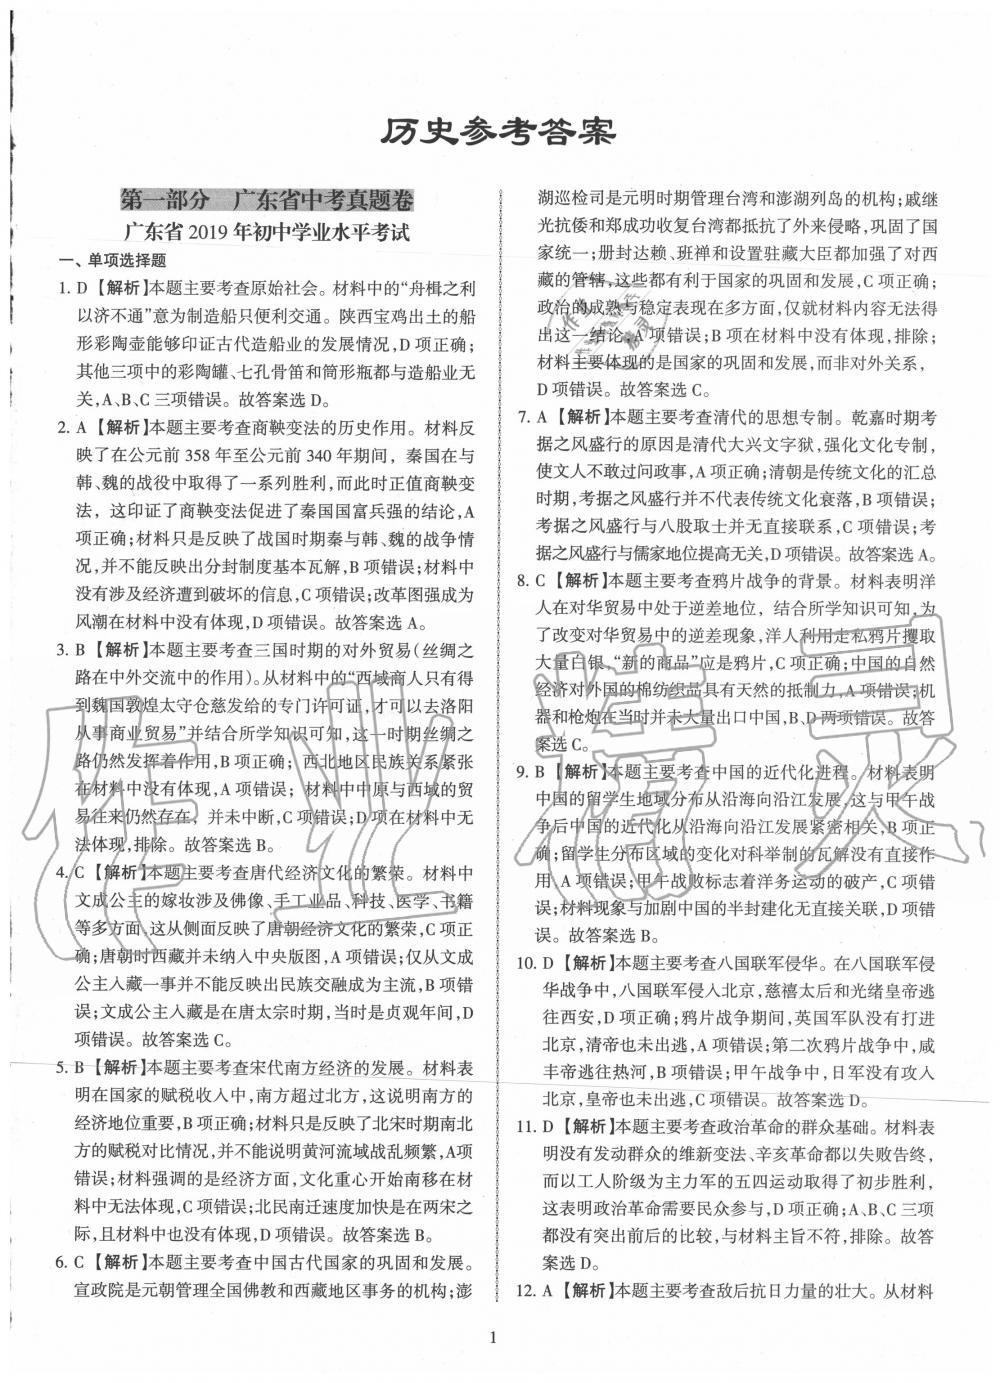 历史参考答案
第一部分 广东省中考真题卷
广东省 2019 年初中学业水平考试
一、单项选择题
1. D 【解析】本题主要考查原始社会。材料中的“舟楫之利
以济不通”意为制造船只便利交通。陕西宝鸡出土的船
形彩陶壶能够印证古代造船业的发展情况,D 项正确;
其他三项中的彩陶罐、七孔骨笛和筒形瓶都与造船业无
关,A、B、C 三项错误。故答案选 D。
2. A 【解析】本题主要考查商鞅变法的历史作用。材料反
映了在公元前 358 年至公元前 340 年期间，秦国在与
韩、魏的战役中取得了一系列胜利,而此时正值商鞅变
法，这印证了商鞅变法促进了秦国国富兵强的结论,A
项正确;材料只是反映了战国时期秦与韩、魏的战争情
况,并不能反映出分封制度基本瓦解,B 项错误;材料中
没有涉及经济遭到破坏的信息,C 项错误;改革图强成为
风潮在材料中没有体现,D 项错误。故答案选 A。
3. B 【解析】本题主要考查三国时期的对外贸易(丝绸之
路在中外交流中的作用)。从材料中的“西域商人只有得
到魏国敦煌太守仓慈发给的专门许可证,才可以去洛阳
从事商业贸易”并结合所学知识可知，这一时期丝绸之
路仍然发挥着作用,B 项正确；西北地区民族关系紧张
在材料中没有体现,A 项错误；材料中中原与西域的贸
易往来仍然存在，并未中断,C 项错误;D 项在材料中无
法体现,排除。故答案选 B。
4. C 【解析】本题主要考查唐代经济文化的繁荣。材料中
文成公主的嫁妆涉及佛像、手工业品、科技、医学、书籍
等多方面,这从侧面反映了唐朝经济文化的繁荣,C 项正
确;唐朝时西藏并未纳入中央版图,A 项错误;仅从文成
公主入藏一事并不能反映出民族交融成为主流,B 项错
误;文成公主入藏是在唐太宗时期,当时是贞观年间,D
项错误。故答案选 C。
5. B 【解析】本题主要考查宋代南方经济的发展。材料表
明在国家的赋税收入中,南方超过北方,这说明南方的
经济地位重要,B 项正确;材料只是反映了北宋时期南北
方的赋税对比情况,并不能说明黄河流域战乱频繁,A项
错误;材料强调的是经济方面,文化重心开始南移在材
料中无法体现,C 项错误;北民南迁速度加快是在两宋之
际,且材料中也没有体现,D 项错误。故答案选 B。
6. C 【解析】本题主要考查中国古代国家的巩固和发展。
宣政院是元朝管理全国佛教和西藏地区事务的机构;澎
湖巡检司是元明时期管理台湾和澎湖列岛的机构;戚继
光抗倭和郑成功收复台湾都抵抗了外来侵略,巩固了国
家统一;册封达赖、班禅和设置驻藏大臣都加强了对西
藏的管辖,这些都有利于国家的巩固和发展,C 项正确;
政治的成熟与稳定表现在多方面,仅就材料内容无法得
出这一结论,A 项错误;B 项在材料中没有体现,排除;
材料主要体现的是国家的巩固和发展,而非对外关系,
D 项错误。故答案选 C。
7. A 【解析】本题主要考查清代的思想专制。乾嘉时期考
据之风盛行的原因是清代大兴文字狱,强化文化专制,
使文人不敢过问政事,A 项正确;清朝是传统文化的汇总
时期,考据之风盛行并不代表传统文化衰落,B 项错误;
考据之风盛行与八股取士并无直接联系,C 项错误;考
据之风盛行与儒家地位提高无关,D 项错误。故答案选 A。
8. C 【解析】本题主要考查鸦片战争的背景。材料表明洋
人在对华贸易中处于逆差地位，结合所学知识可知,为
了改变对华贸易中的逆差现象,洋人利用走私鸦片攫取
大量白银,“新的商品”应是鸦片,C 项正确;中国的自然
经济对外国的棉纺织品具有天然的抵制力,A 项错误;机
器和枪炮在当时并未大量出口中国,B、D 两项错误。故答
案选 C。
9. B 【解析】本题主要考查中国的近代化进程。材料表明
中国的留学生地域分布从沿海向沿江发展,这与甲午战
争后中国的近代化从沿海向沿江发展紧密相关,B 项正
确;留学生分布区域的变化对科举制的瓦解没有直接作
用,A 项错误;甲午战败标志着洋务运动的破产,C 项错
误;材料现象与加剧中国的半封建化无直接关联,D 项错
误。故答案选 B。
10. D 【解析】本题主要考查八国联军侵华。在八国联军侵
华战争中,八国联军侵入北京,慈禧太后和光绪皇帝逃
往西安,D 项正确;鸦片战争期间,英国军队没有打进
北京,清帝也未出逃,A 项错误;第二次鸦片战争中,咸
丰帝逃往热河,B 项错误;甲午战争中,日军没有攻入
北京,皇帝也未出逃,C 项错误。故答案选 D。
11. D 【解析】本题主要考查政治革命的群众基础。材料表
明没有发动群众的维新变法、辛亥革命都以失败告终,
而以工人阶级为主力军的五四运动取得了初步胜利,
这表明政治革命需要民众参与,D 项正确;A、B、C 三项
都没有突出前后的比较,与材料主旨不符,排除。故答
案选 D。
12. A 【解析】本题主要考查敌后抗日力量的壮大。从材料
1
作业精灵